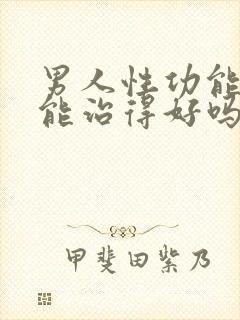 男人性功能
能治得好吗
甲斐田紫乃